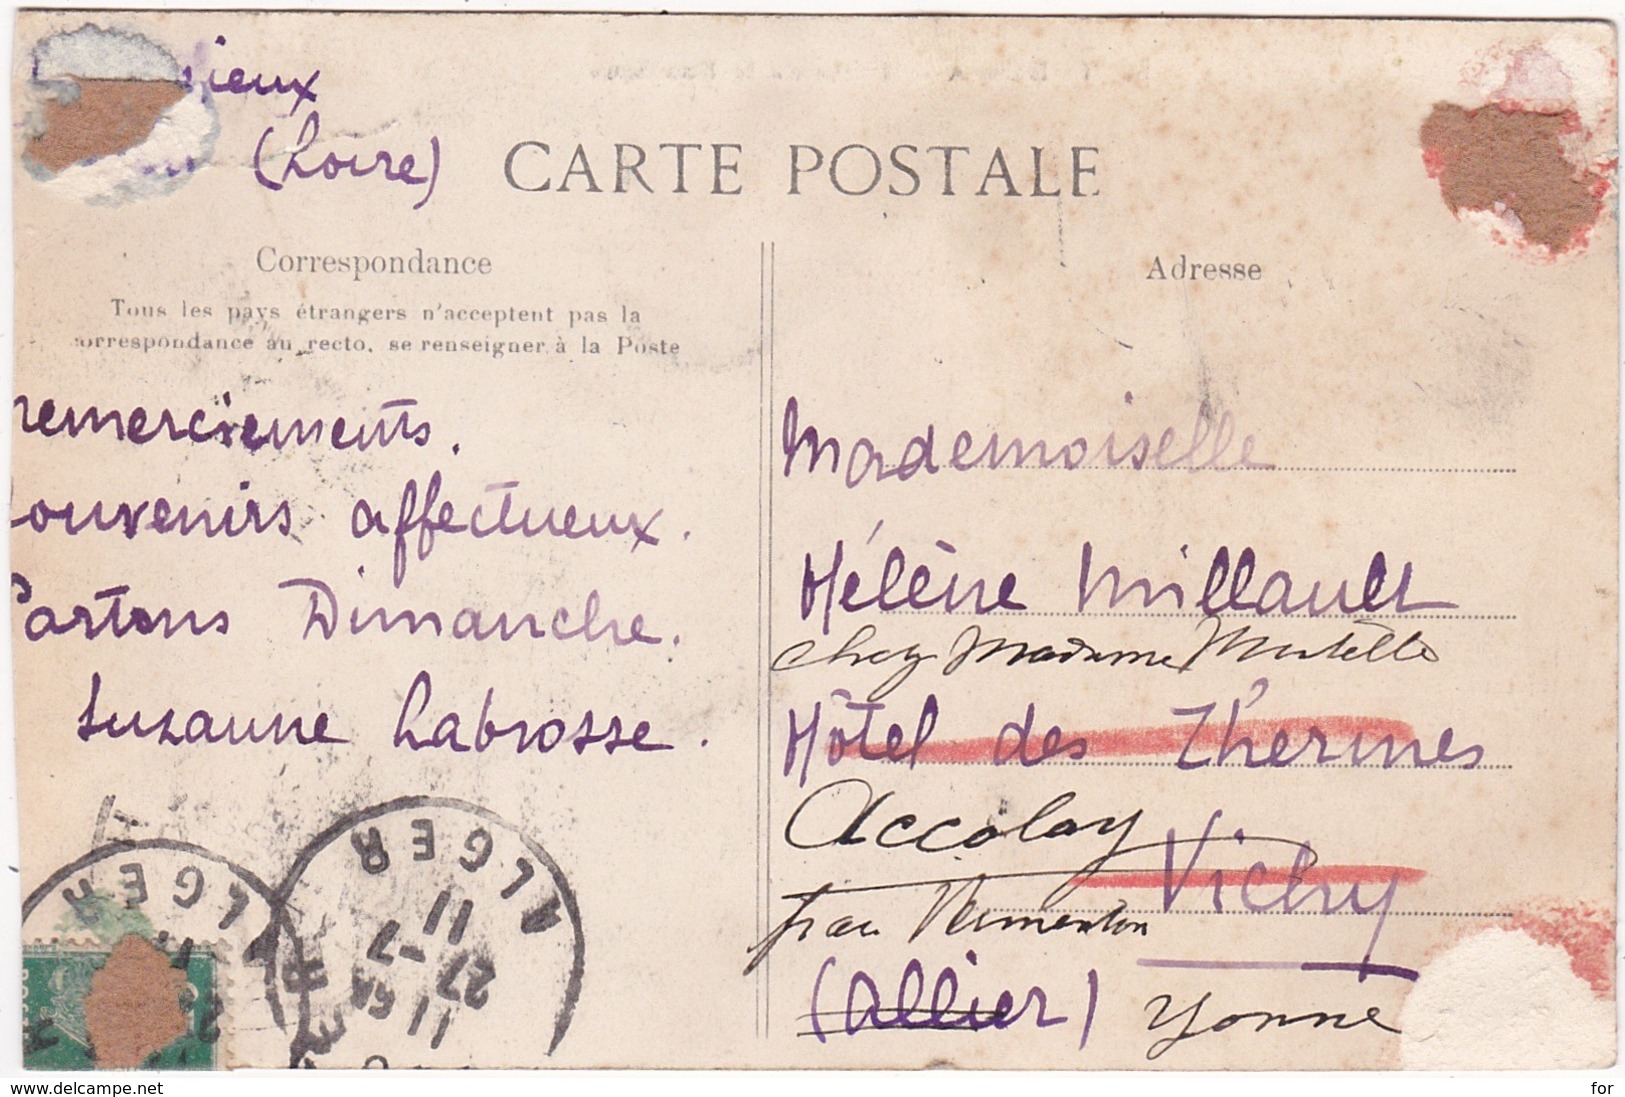 ieux
(Loire)
CARTE POSTALE
Correspondance
Tous les pays étrangers n'acceptent pas la
orrespondance au recto, se renseigner à la Poste
remerciements.
ouvenirs affectueux.
Partons Dimanche.
Suzanne Labrosse.
Adresse
Mademoiselle
Hélène Millault
chez Madame
Hôtel des Thermes
Accolay
Vichy
par Vermenton
(Allier)
Yonne
ALGER
11
27 -7
11
LGER
delcampe.net
for